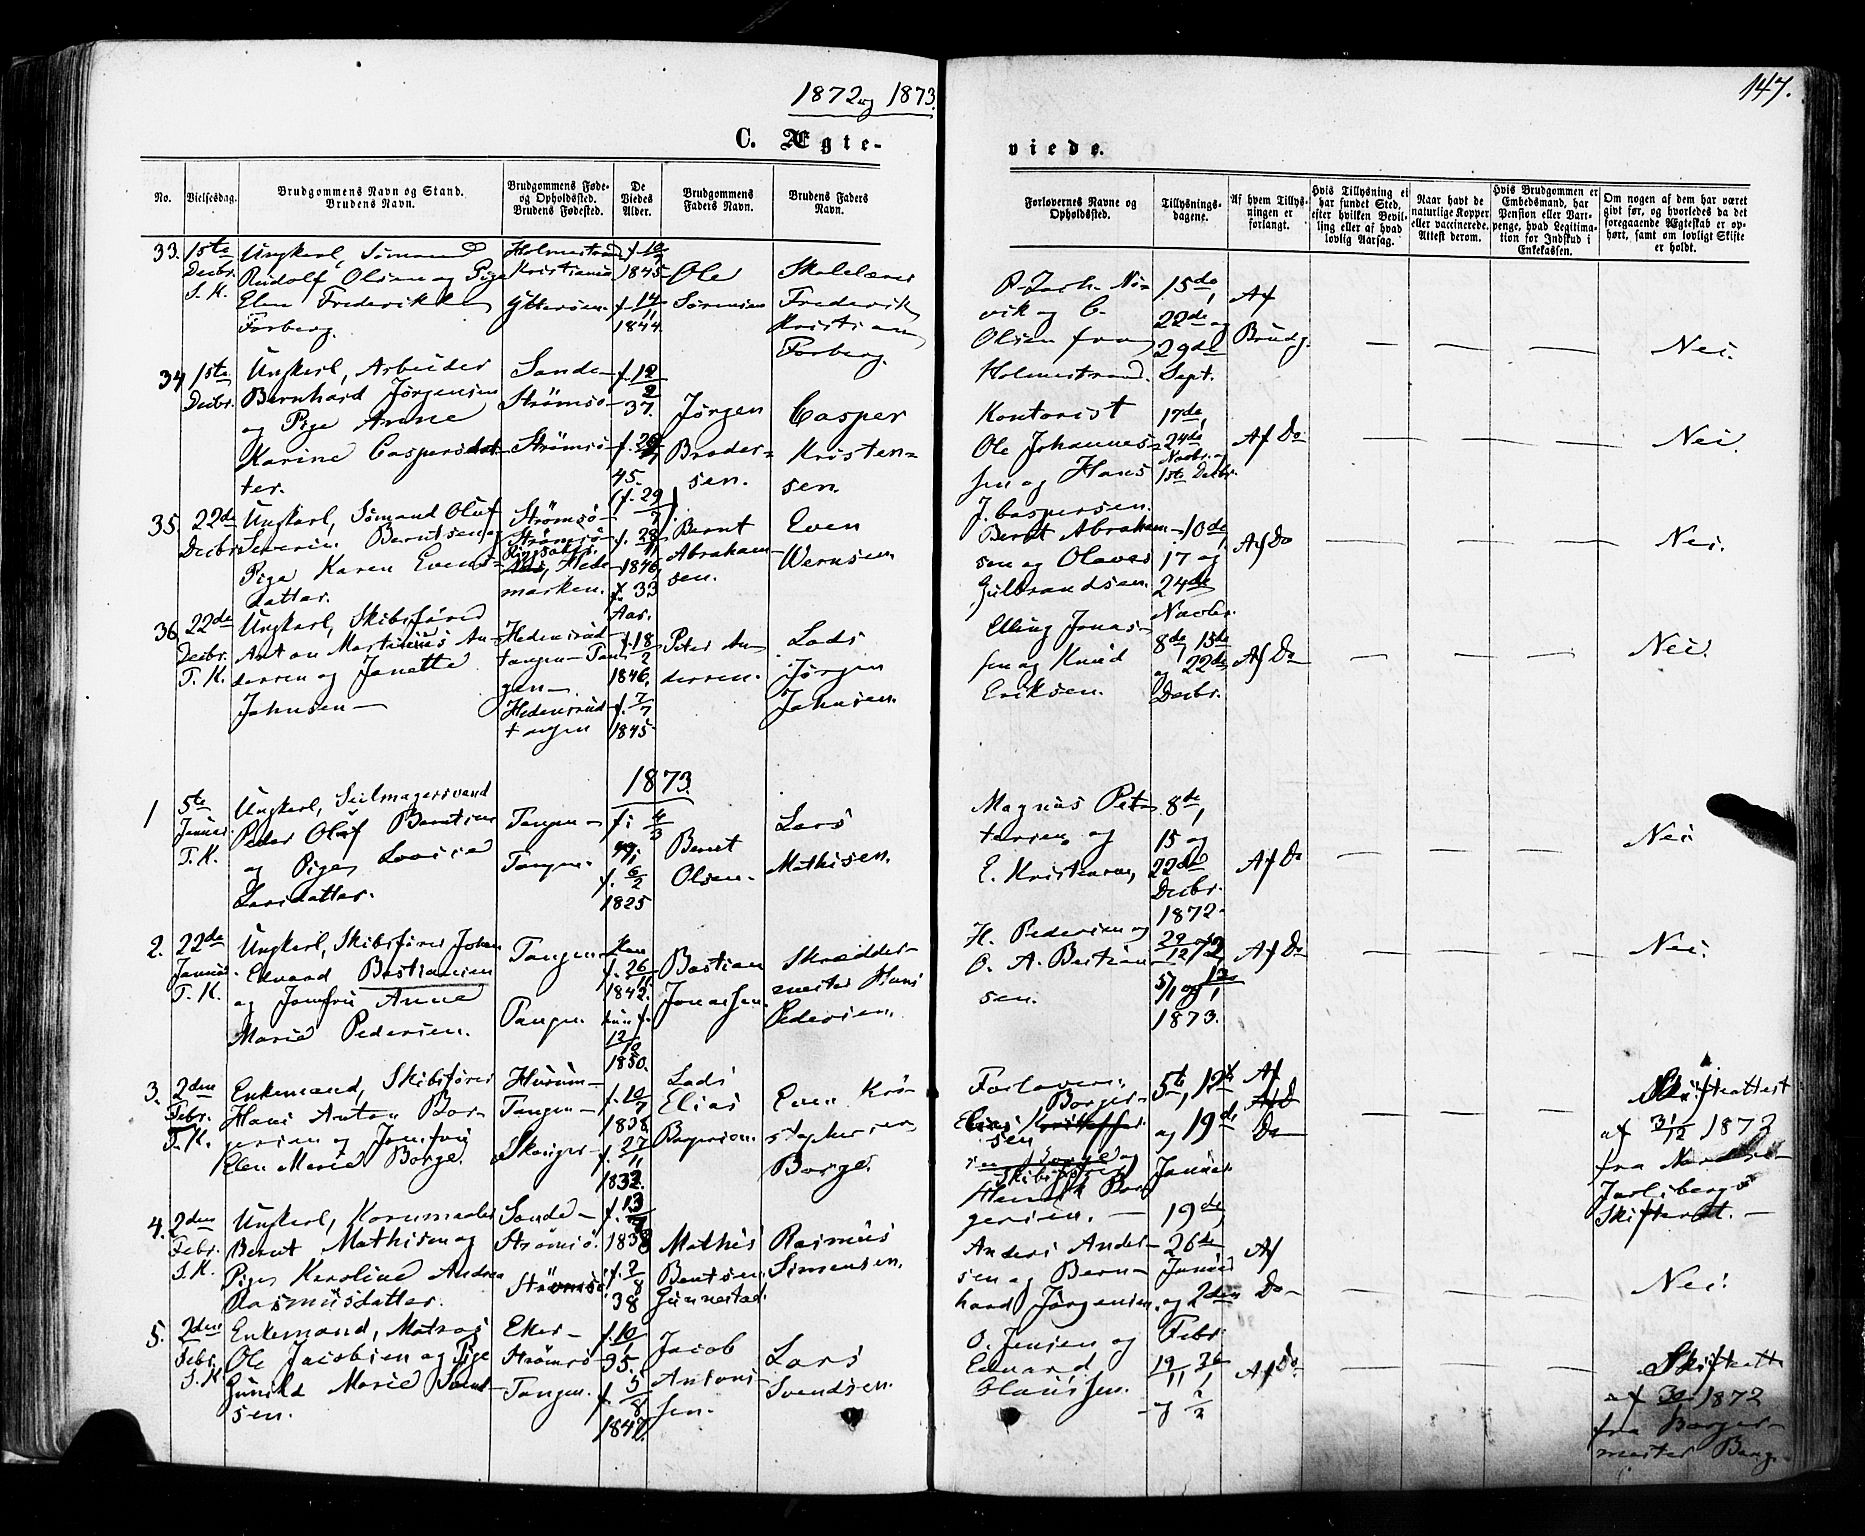 1872 og 1873.
147.
C. Ægte-
viede.
No.
Vielsesdag.
Brudgommens Navn og Stand.
Brudens Navn.
Brudgommens Føde-
og Opholdssted.
Brudens Fødested.
De
Viedes
Alder.
Brudgommens
Faders Navn.
Brudens Faders
Navn.
Forlovernes Navne og
Opholdssted.
Tillysnings-
dagene.
Af hvem Tillys-
ningen er
forlangt.
Hvis Tillysning ei
har fundet Sted,
efter hvilken Bevil-
ling eller af hvad
lovlig Aarsag.
Naar havt de
naturlige Kopper
eller vaccinerede.
Attest derom.
Hvis Brudgommen er
Embedsmand, har
Pension eller Vart-
penge, hvad Legitima-
tion for Indskud i
Enkekassen.
Om nogen af dem har været
givt før, og hvorledes da det
foregaaende Ægteskab er op-
hørt, samt om lovligt Skifte
er holdt.
33.
1ste
Decbr.
S. K.
Ungkarl, Sømand
Rudolf Olsen og Pige
Elen Frederikke
Forberg.
Holmestrand
Kristiania
Ytterøen.
f. 10/7
1845
f. 14/11
1844.
Ole
Sørensen
Skolelærer
Frederik
Kristian
Forberg.
vik og C.
Olsen fra
Holmestrand.
15de,
22de og
29de
Sept.
Af
Brudg.
Nei.
34
1ste
Decbr.
Ungkarl, Arbeider
Bernhard Jørgensen
og Pige Anne
Karine Caspersdat-
ter.
Sande-
Strømsø-
Strømsø-
f. 12/2
37.
45.
Jørgen
Broder-
sen.
Casper
Kristen-
sen.
Kontorist
Ole Johannes-
sen og Hans
J. Caspersen.
17de,
24de
Novbr. og
1ste Decbr.
Af Do
Nei.
35.
22de
Decbr.
Ungkarl, Sømand Oluf
Severin Berntsen og
Pige Karen Evens-
datter.
Strømsø-
Strømsø
Hede-
marken.
f. 29/7
f. 28/11
1846,
f. 33
Aar.
Bernt
Abraham-
sen.
Even
Wernsen
Bernt Abraham-
sen og Olaves
Gulbrandsen.
10de,
17 og
24de
Novbr.
Af Do
Nei.
36
22de
Decbr.
T. K.
Ungkarl, Skibsfører
Anton Martinius An-
dersen og Janette
Johnsen-
Hedensrud-
tangen-Tan-
gen-
Hedensrud-
tangen
f. 18/2
1846.
f. 7/7
1845
Peter An-
dersen.
Lods
Jørgen
Johnsen.
Elling Jonas-
sen og Knud
Eriksen.
8de, 15de
og 22de
Decbr.
Af Do
Nei.
1873.
1
5te
Januar.
T. K.
Ungkarl, Seilmagersvend
Peder Oluf Berntsen
og Pige Lovise
Larsdatter.
Tangen-
Tangen.
f. 4/3
49,
f. 6/2
1825
Bernt
Olsen.
Lars
Mathisen.
Magnus Pet-
tersen og
E. Kristiansen,
8de,
15 og
22de
Decbr.
1872.
Af Do
Nei.
2.
22de
Januar
T. K.
Ungkarl, Skibsfører Johan
Edvard Bastiansen
og Jomfru Anne
Marie Pedersen.
Tangen-
Tangen.
Han
f. 26/11
1842.
hun f.
12/10
1850.
Bastian
Jonassen.
Skrædder-
mester Hans
Pedersen.
H. Pedersen og
O. A. Bastian-
sen.
29/12 72
5/1 og 12/1
1873.
Af Do
Nei.
3.
2den
Febr.
T. K.
Enkemand, Skibsfører
Hans Anton Bor-
gersen og Jomfru
Elen Marie Borge.
Hurum-
Tangen-
Skouger-
f. 10/7
1838
f. 27/11
1832.
Lods
Elias
Borgersen.
Even Kri-
stophersen
Borge.
Forlovere:
Elias Borger-
sen
Skibsfører
Henrik Bor-
gersen.
5te, 12te
og 19de
Januar
Af
Do
Skifteattest
af 31/12 1872
fra Nordre
Jarlsbergs
Skifteret.
4.
2den
Febr.
S. K.
Ungkarl, Kornmaaler
Bernt Mathisen og
Pige Karoline Andrea
Rasmusdatter.
Sande-
Strømsø.
Strømsø.
f. 13/7
1838
f. 2/8
38
Mathis
Bentsen
Gunnestad.
Rasmus
Simensen.
Anders Ander-
sen og Bern-
hard Jørgensen.
19de,
26de
Januar
og 2den
Febr.
Af
Do-
Nei.
5.
2den
Febr.
S. K.
Enkemand, Matros
Ole Jacobsen og Pige
Gunild Marie Svend-
sen.
Eker-
Strømsø-
Tangen.
f. 10/1
35.
f. 5/8
1847.
Jacob
Antoni-
sen.
Lars
Svendsen.
O. Jensen og
Edvard
Olaussen.
19/11, 26/1
og 2/2
Af Do.
Skifteatt
af 1872
fra Borger-
mester Bang.